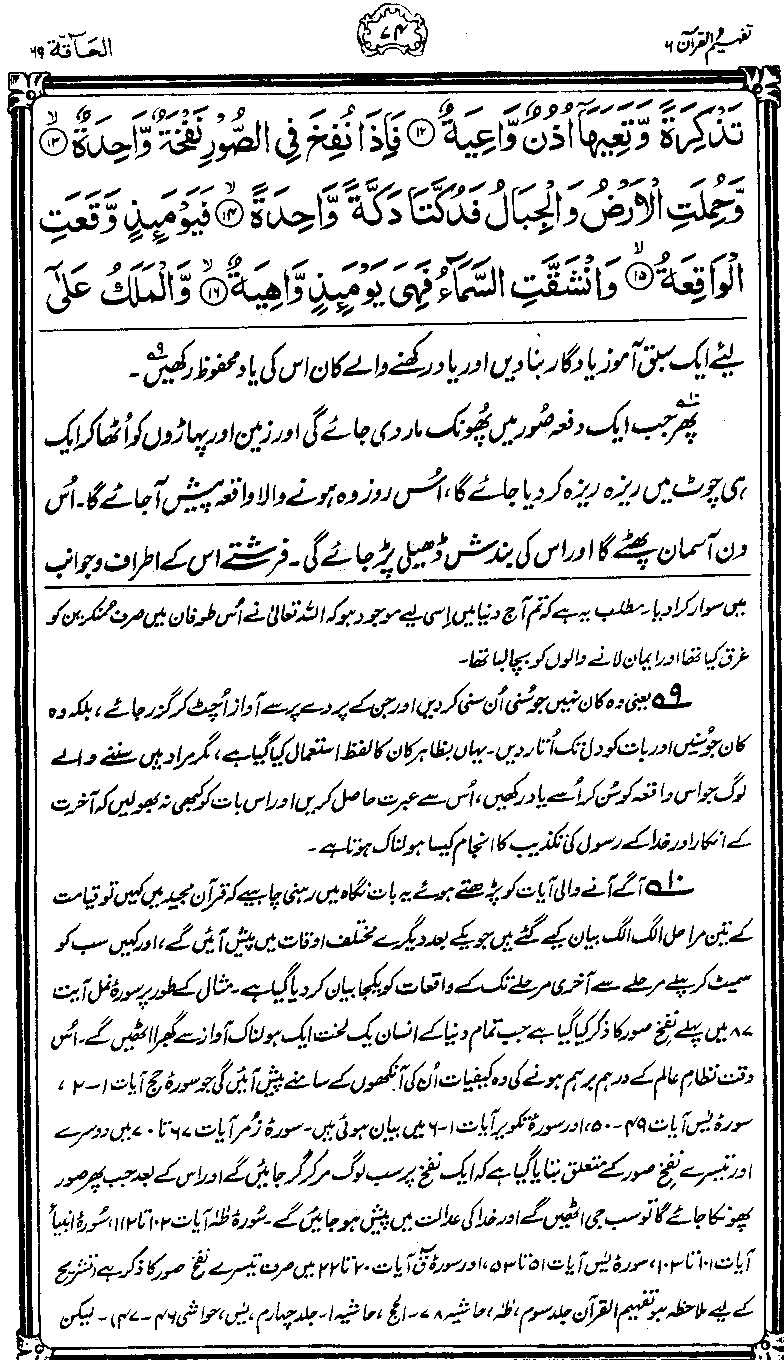 تفہیم القرآن ۶
۷۴
الحاقۃ ۶۹
تَذْكِرَةً وَّتَعِيَهَآ اُذُنٌ وَّاعِيَةٌ ⑫ فَاِذَا نُفِخَ فِي الصُّوْرِ نَفْخَةٌ وَّاحِدَةٌ ⑬
وَّحُمِلَتِ الْاَرْضُ وَالْجِبَالُ فَدُكَّتَا دَكَّةً وَّاحِدَةً ⑭ فَيَوْمَئِذٍ وَّقَعَتِ
الْوَاقِعَةُ ⑮ وَانْشَقَّتِ السَّمَآءُ فَهِيَ يَوْمَئِذٍ وَّاهِيَةٌ ⑯ وَّالْمَلَكُ عَلٰٓى
لیے ایک سبق آموز یادگار بنا دیں اور یاد رکھنے والے کان اس کی یاد محفوظ رکھیں۹۔
پھر۱۰ جب ایک دفعہ صُور میں پھُونک مار دی جائے گی اور زمین اور پہاڑوں کو اُٹھا کر ایک
ہی چوٹ میں ریزہ ریزہ کر دیا جائے گا، اُس روز وہ ہونے والا واقعہ پیش آجائے گا۔ اُس
دن آسمان پھٹے گا اور اس کی بندش ڈھیلی پڑ جائے گی۔ فرشتے اس کے اطراف و جوانب
میں سوار کرا دیا۔ مطلب یہ ہے کہ تم آج دنیا میں اِسی لیے موجود ہو کہ اللہ تعالیٰ نے اُس طوفان میں صرف منکرین کو
غرق کیا تھا اور ایمان لانے والوں کو بچا لیا تھا۔
۹ یعنی وہ کان نہیں جو سُنی اَن سنی کر دیں اور جن کے پردے پر سے آواز اُچٹ کر گزر جائے، بلکہ وہ
کان جو سُنیں اور بات کو دل تک اُتار دیں۔ یہاں بظاہر کان کا لفظ استعمال کیا گیا ہے، مگر مراد ہیں سننے والے
لوگ جو اس واقعہ کو سُن کر اُسے یاد رکھیں، اُس سے عبرت حاصل کریں اور اس بات کو کبھی نہ بھولیں کہ آخرت
کے انکار اور خدا کے رسول کی تکذیب کا انجام کیسا ہولناک ہوتا ہے۔
۱۰ آگے آنے والی آیات کو پڑھتے ہوئے یہ بات نگاہ میں رہنی چاہیے کہ قرآن مجید میں کہیں تو قیامت
کے تین مراحل الگ الگ بیان کیے گئے ہیں جو یکے بعد دیگرے مختلف اوقات میں پیش آئیں گے، اور کہیں سب کو
سمیٹ کر پہلے مرحلے سے آخری مرحلے تک کے واقعات کو یکجا بیان کر دیا گیا ہے۔ مثال کے طور پر سورۂ نمل آیت
۸۷ میں پہلے نفخِ صور کا ذکر کیا گیا ہے جب تمام دنیا کے انسان یک لخت ایک ہولناک آواز سے گھبرا اٹھیں گے۔ اُس
وقت نظامِ عالم کے درہم برہم ہونے کی وہ کیفیات اُن کی آنکھوں کے سامنے پیش آئیں گی جو سورۂ حج آیات ۱-۲،
سورۂ یٰس آیات ۴۹-۵۰، اور سورۂ تکویر آیات ۱-۶ میں بیان ہوئی ہیں۔ سورۂ زُمر آیات ۶۷ تا ۷۰ میں دوسرے
اور تیسرے نفخِ صور کے متعلق بتایا گیا ہے کہ ایک نفخ پر سب لوگ مر کر گر جائیں گے اور اس کے بعد جب پھر صور
پھونکا جائے گا تو سب جی اٹھیں گے اور خدا کی عدالت میں پیش ہو جائیں گے۔ سُورۂ طٰہٰ آیات ۱۰۲ تا ۱۱۲، سُورۂ انبیاء
آیات ۱۰۱ تا ۱۰۳، سورۂ یٰس آیات ۵۱ تا ۵۳، اور سورۂ قٓ آیات ۲۰ تا ۲۲ میں صرف تیسرے نفخِ صور کا ذکر ہے (تشریح
کے لیے ملاحظہ ہو تفہیم القرآن جلد سوم، طٰہٰ، حاشیہ ۷۸۔ الحج، حاشیہ ۱۔ جلد چہارم، یٰس، حواشی ۴۶-۴۷)۔ لیکن